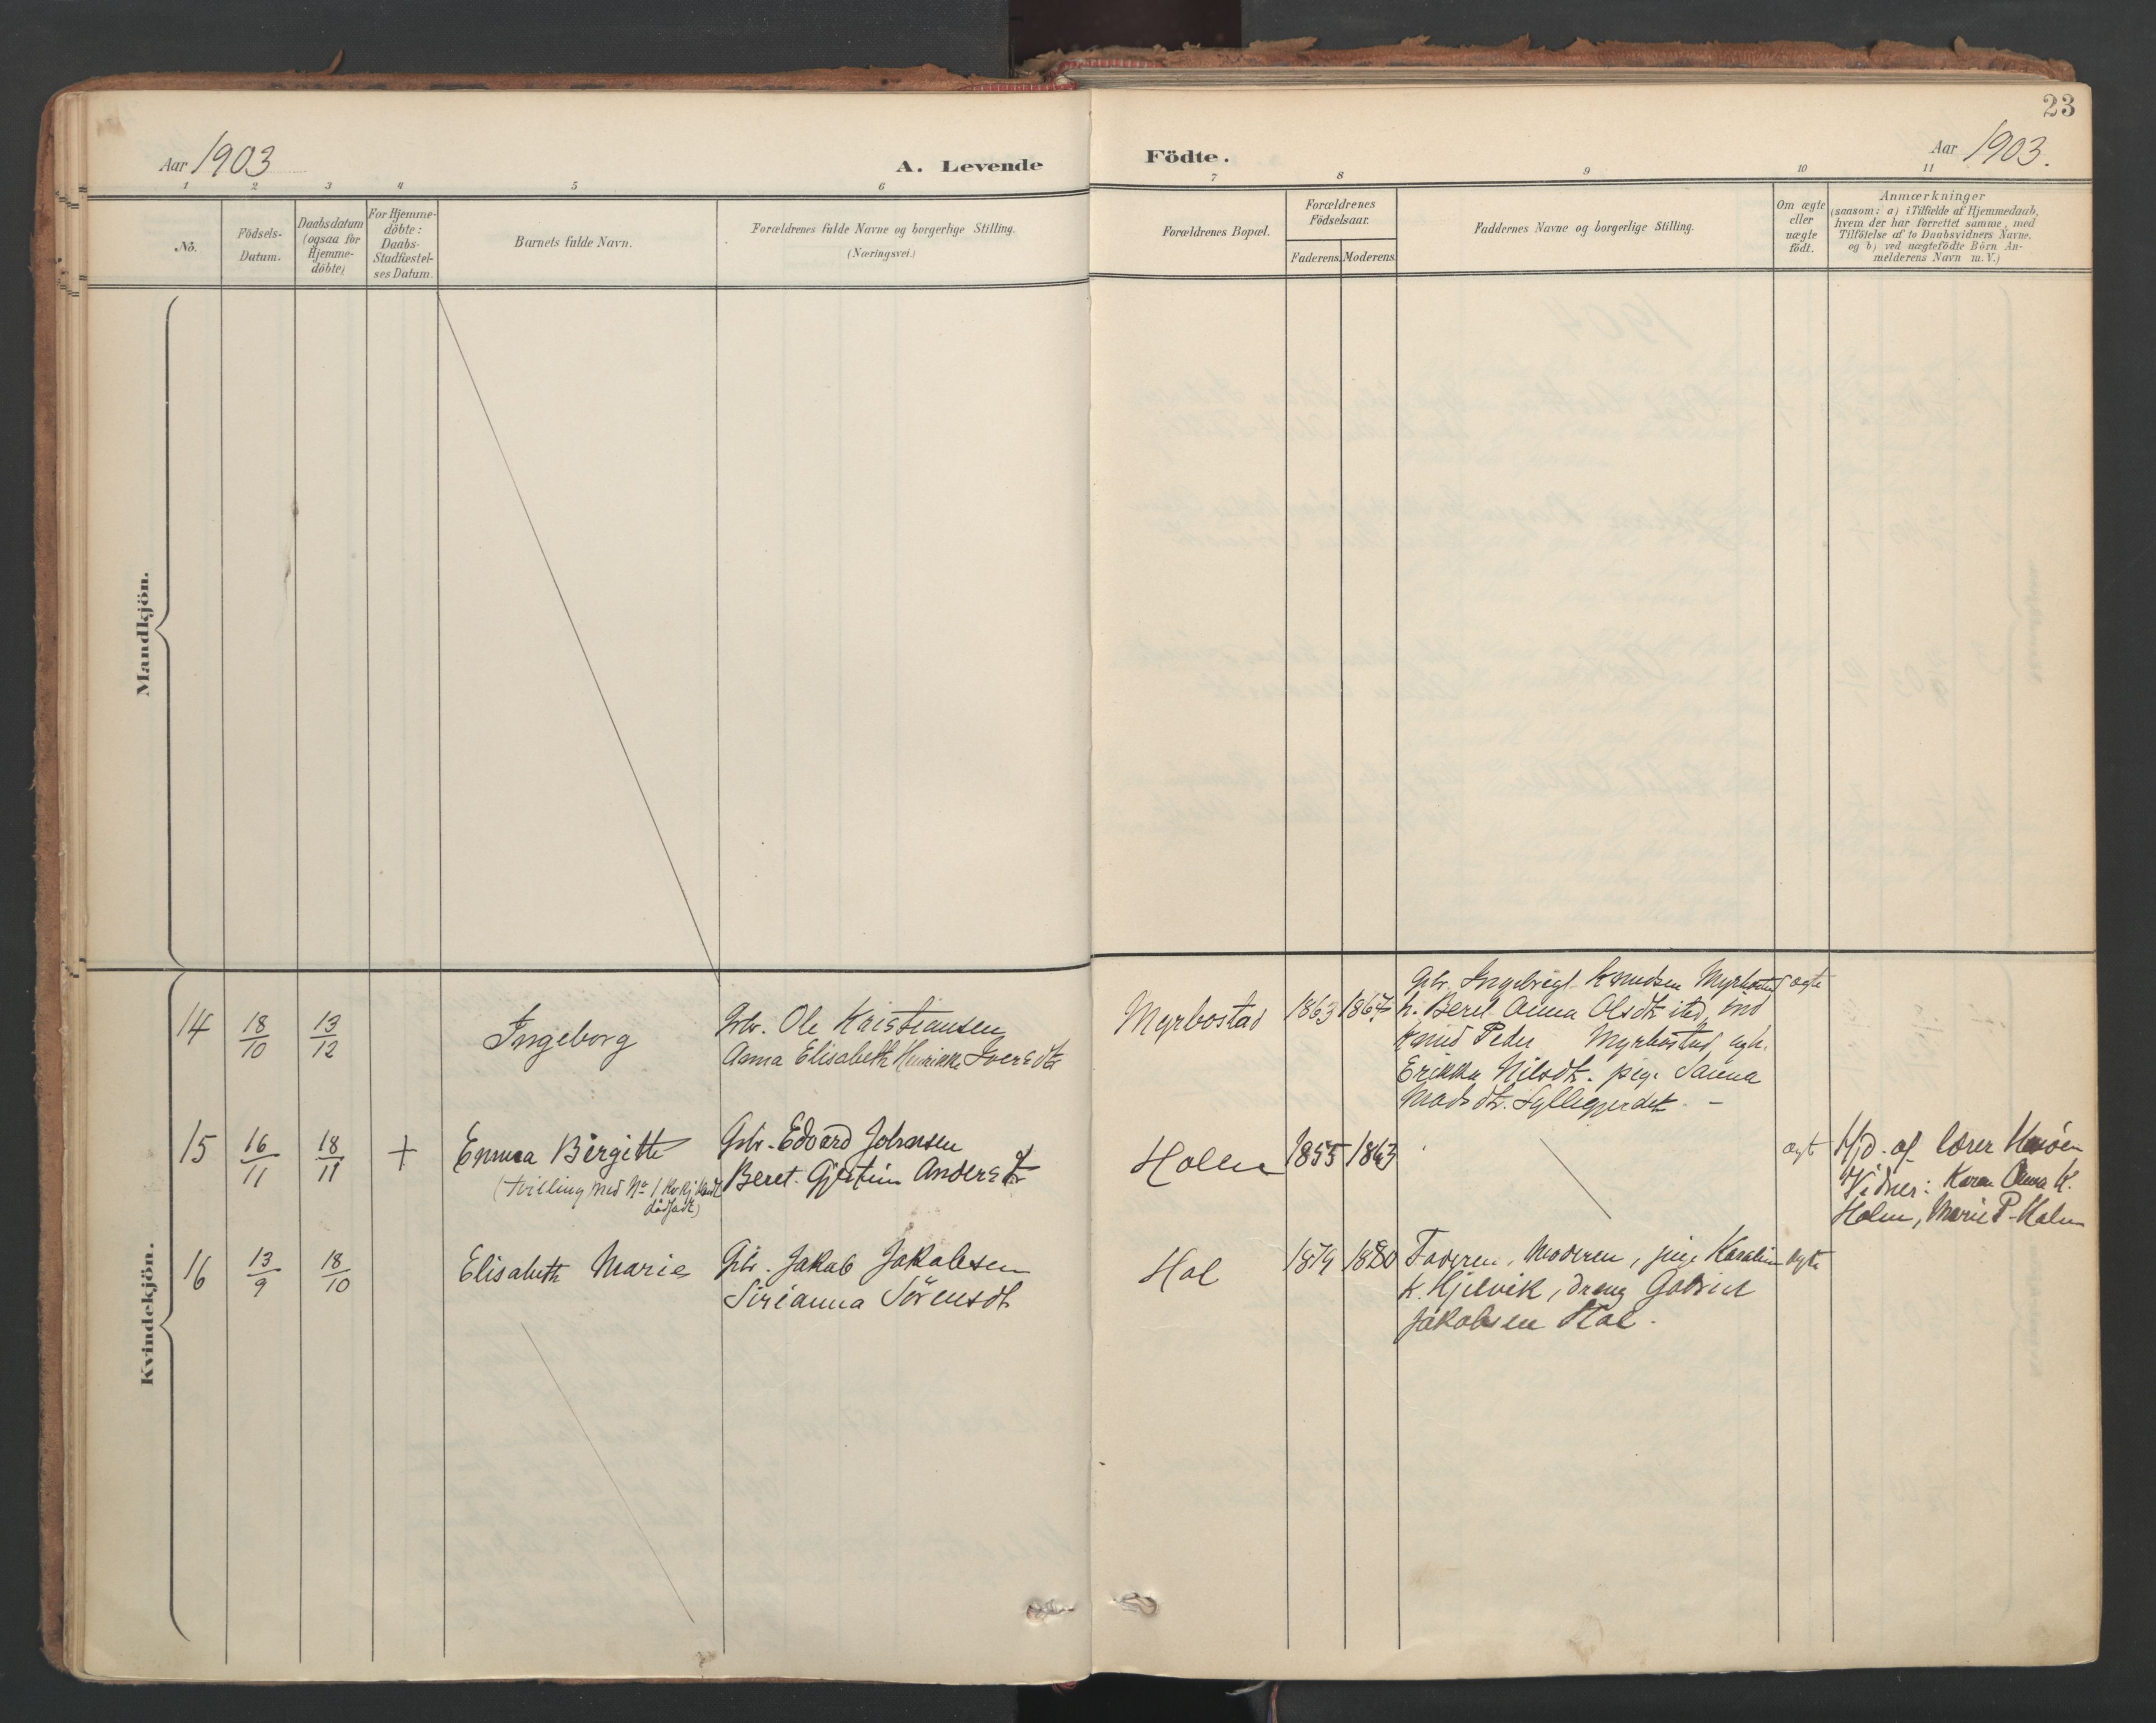 23
Aar 1903
A. Levende
Födte.
Aar 1903.
1 2 3 4 5 6 7 8 9 10 11
No.
Födsels-
Datum.
Daabsdatum
(ogsaa for
Hjemme-
döbte)
For Hjemme-
döbte:
Daabs-
Stadfæstel-
ses Datum.
Barnets fulde Navn.
Forældrenes fulde Navne og borgerlige Stilling.
(Næringsvei.)
Forældrenes Bopæl.
Forældrenes
Födselsaar.
Faderens. Moderens.
Faddernes Navne og borgerlige Stilling.
Om ægte
eller
uægte
födt.
Anmærkninger
(saasom: a) i Tilfælde af Hjemmedaab,
hvem der har forrettet samme, med
Tilföielse af to Daabsvidners Navne.
og b) ved uægtefödte Börn An-
melderens Navn m. V.)
Mandkjön.
Kvindekjön.
14
18/10
13/12
Ingeborg
Gbr. Ole Kristiansen
Anna Elisabeth Henrikke Iversdtr
Myrbostad
1863
1867
Gbr. Ingebrigt Knudsen Myrbostad
h. Beret Anna Olsdtr itsd, ind
Knud Peder Myrbostad, ugh.
Erikka Nilsdtr. pige Sanna
Madsdtr. Sylliegjerdet. –
ægte
15
16/11
18/11
+
Emma Birgitte
(tvilling med No 1
dødfødt)
Gbr. Edvard Johnsen
Beret Gjertine Andersdtr
Holm
1855
1863
ægt
Hjd. af lærer
Vidner: Karen Anna K.
Holm, Marie P. Holm
16
13/9
18/10
Elisabeth Marie
Gbr. Jakob Jakobsen
Sirianna Sörensdtr
Hol
1879
1880
Faderen, Moderen, pige Karoline
K. Hjelvik, dreng Gabriel
Jakobsen Hol.
ægte